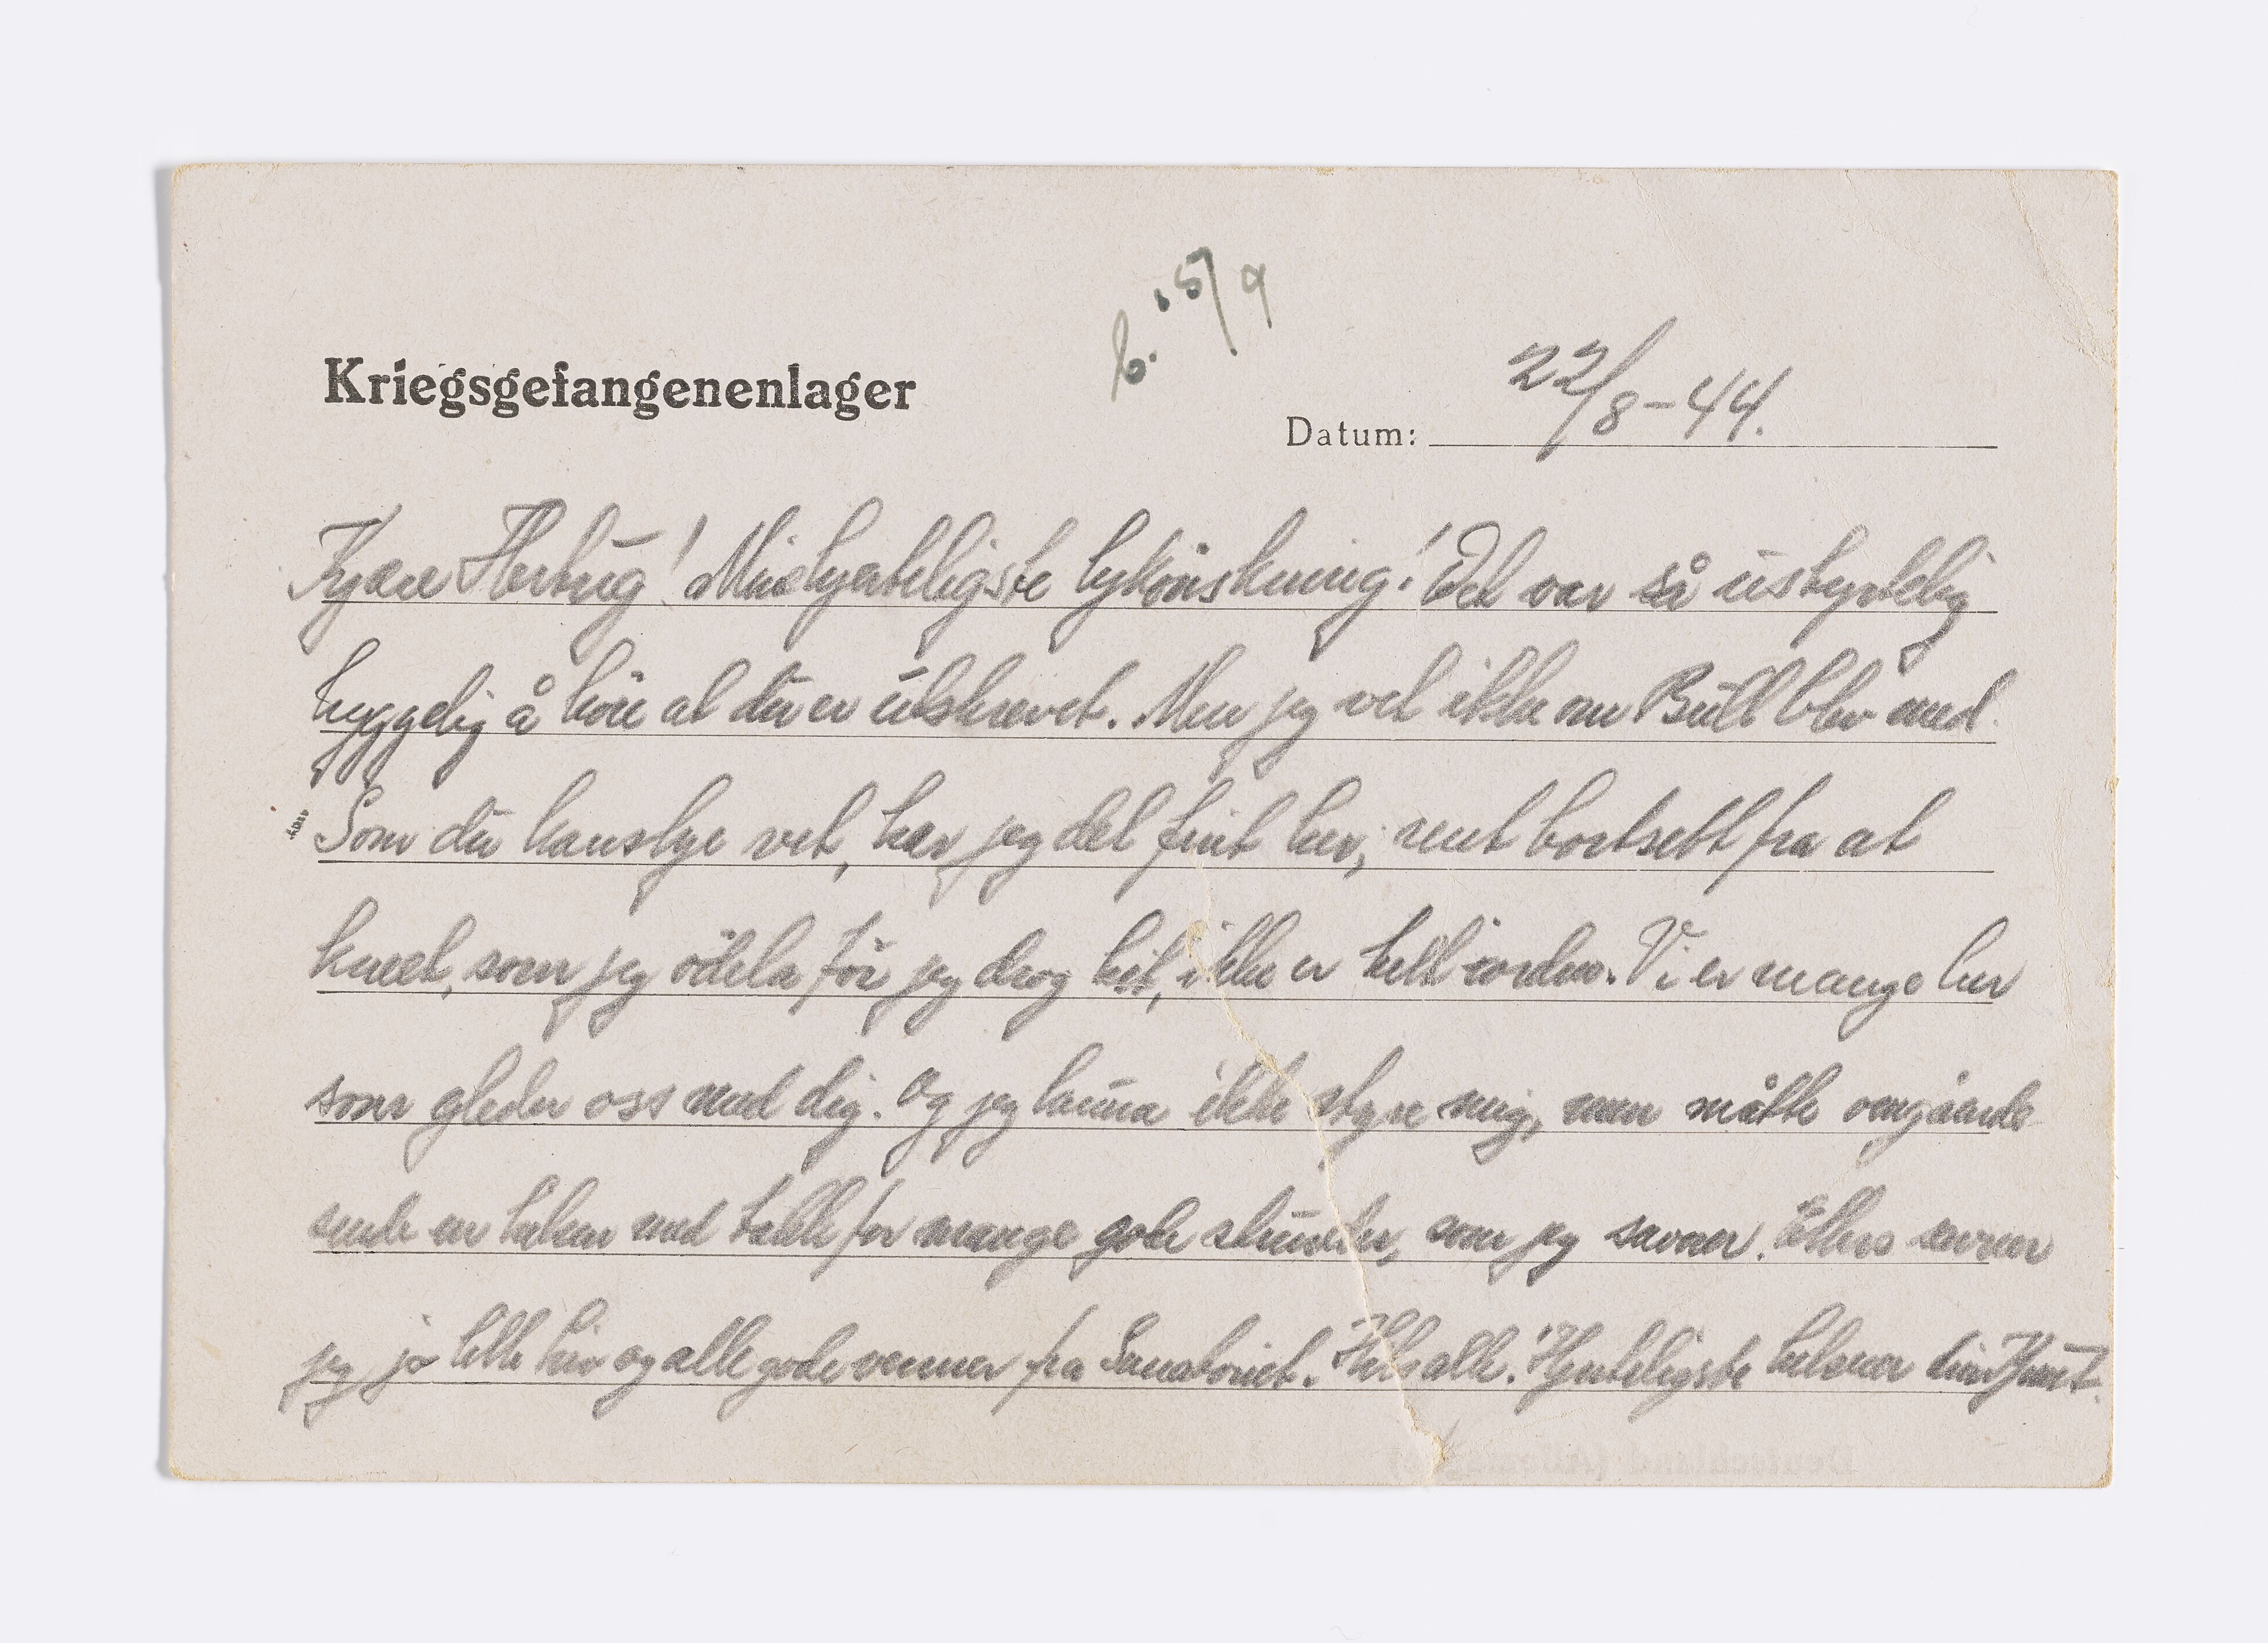 b. 15/9
Kriegsgefangenenlager
Datum: 22/8-44.
Kjære Hertug! Min hjerteligste lykönskning! Det var så ustyrtelig
hyggelig å höre at du er utskrevet. Men jeg vet ikke om Bull blev med.
Som du kanskje vet, har jeg det fint her, rent bortsett fra at
kneet, som jeg ödela för jeg drog hit, ikke er helt i orden. Vi er mange her
som gleder oss med dig. Og jeg kunne ikke styre mig, men måtte omgående
sende en hilsen med takk for mange gode stunder, som jeg savner. Ellers savner
jeg jo lille Liv og alle gode venner fra Sanatoriet. Hils alle! Hjerteligste hilsener din Knut.
Deutschland (Allemagne)